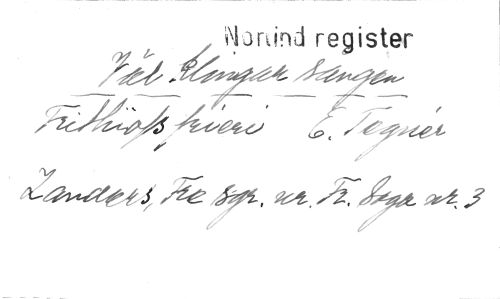 Nonind register
Väl klingar sången
Frithiofs frieri E. Tegnér
Zanders, Fre sgr. ur. Fr. saga nr. 3